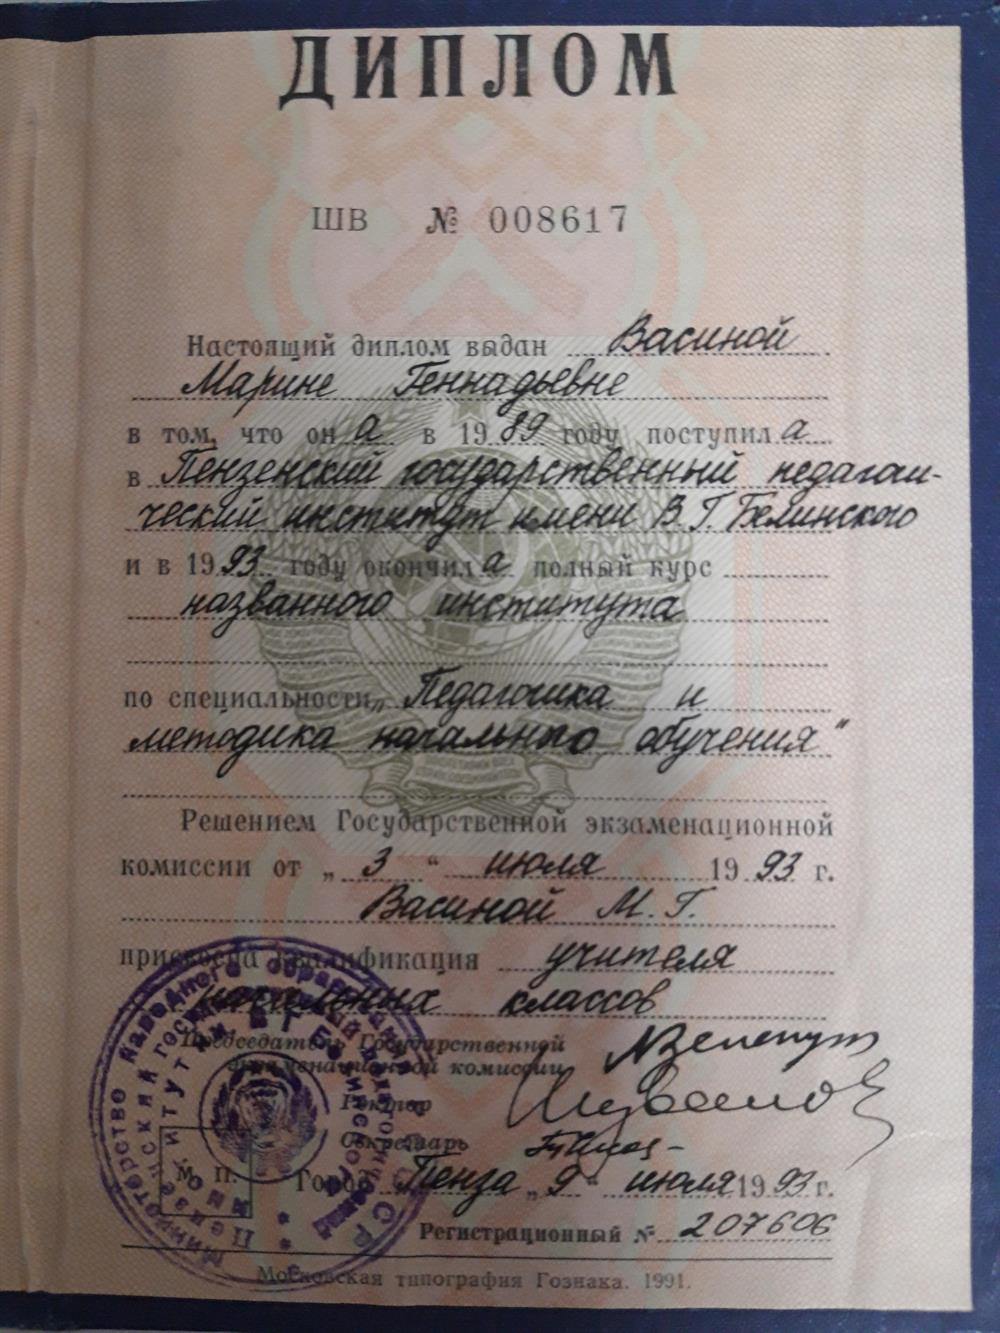 ДИПЛОМ
ШВ № 008617
Настоящий диплом выдан Васиной
Марине Геннадьевне
в том, что она в 1989 году поступила
в Пензенский государственный педагоги-
ческий институт имени В.Г. Белинского
и в 1993 году окончила полный курс
названного института
по специальности „Педагогика и
методика начального обучения"
Решением Государственной экзаменационной
комиссии от „3" июля 1993 г.
Васиной М.Г.
присвоена квалификация учителя
начальных классов
Председатель Государственной
экзаменационной комиссии
Ректор
Секретарь
М. П.
Город Пенза „9" июля 1993 г.
Регистрационный № 207606
Московская типография Гознака. 1991.